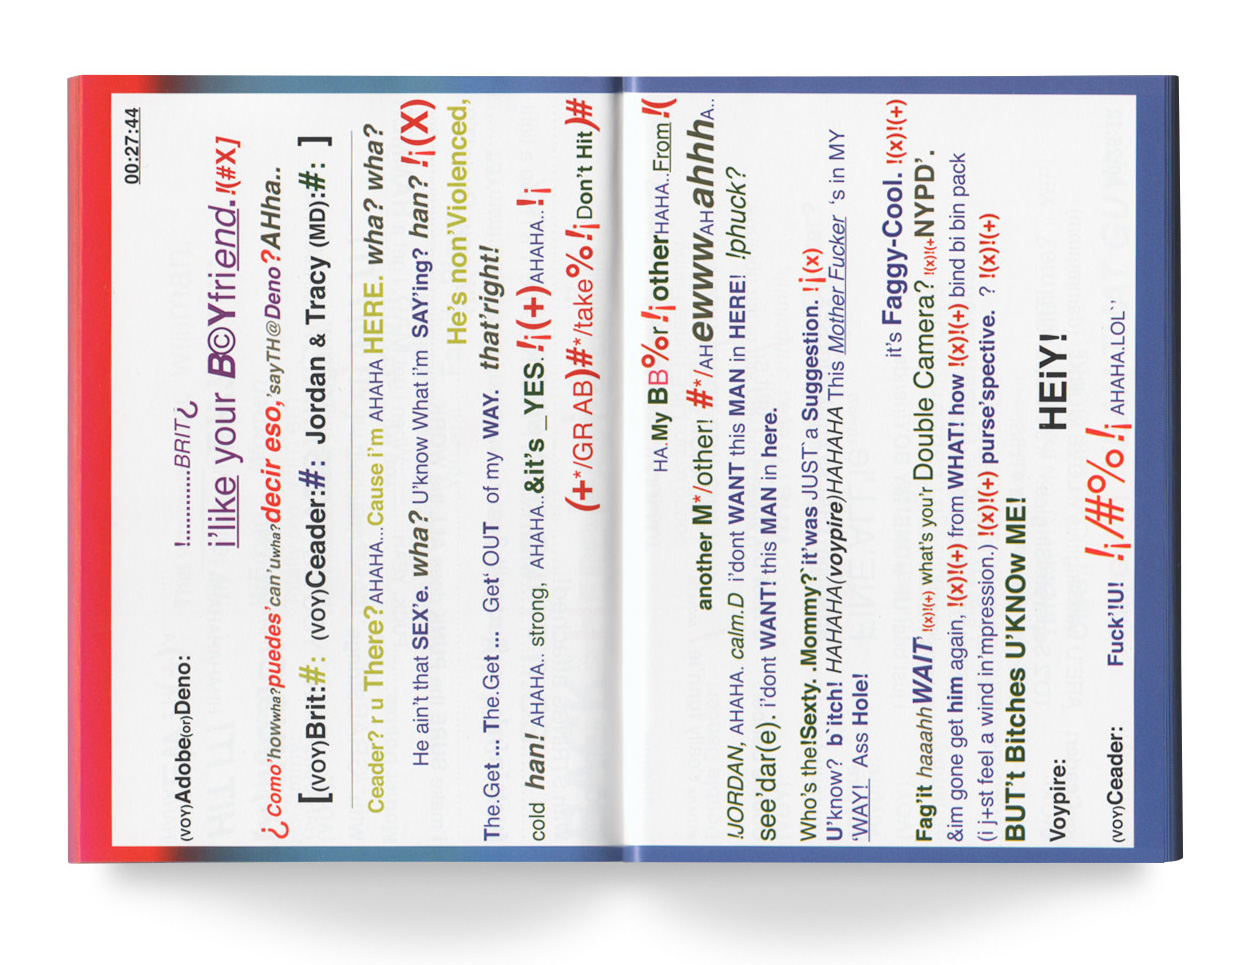 00:27:44
(VOY)Adobe(or)Deno: !............BRIT¿
i'like your B©Yfriend.!(#X]
¿Como'howwha?puedes'can'uwha?decir eso,'sayTH@Deno?AHha..
[(VOY)Brit:#: (VOY)Ceader:#: Jordan & Tracy (MD):#: ]
Ceader? r u There? AHAHA...Cause i'm AHAHA HERE. wha? wha?
He ain't that SEX'e. wha? U'know What i'm SAY'ing? han? !¡(X)
He's non'Violenced,
The.Get ... The.Get ... Get' OUT of my WAY. that'right!
cold han! AHAHA.. strong, AHAHA..&it's _YES.!¡(+)AHAHA..!¡
(+*/GR AB)#*/take%!¡Don't Hit)#
HA.My BB%r!¡otherHAHA..From!(
another M*/other! #*/AHewwwAHahhhA..
!JORDAN, AHAHA. calm.D i'dont WANT this MAN in HERE! !phuck?
see'dar(e). i'dont WANT! this MAN in here.
Who's the!Sexty. .Mommy?`it'was JUST`a Suggestion. !¡(x)
U'know? b`itch! HAHAHA(voypire)HAHAHA This Mother Fucker 's in MY
'WAY! Ass Hole!
it's Faggy-Cool. !(x)!(+)
Fag'it haaahhWAIT'!(x)!(+) what's you'r Double Camera? !(x)!(+NYPD'.
&im gone get him again, !(x)!(+) from WHAT! how !(x)!(+) bind bi bin pack
(i j+st feel a wind in'mpression.) !(x)!(+) purse'spective. ? !(x)!(+)
BUT't Bitches U'KNOw ME!
Voypire: HEiY!
(VOY)Ceader: Fuck'!U! !¡/#%!¡ AHAHA.LOL``